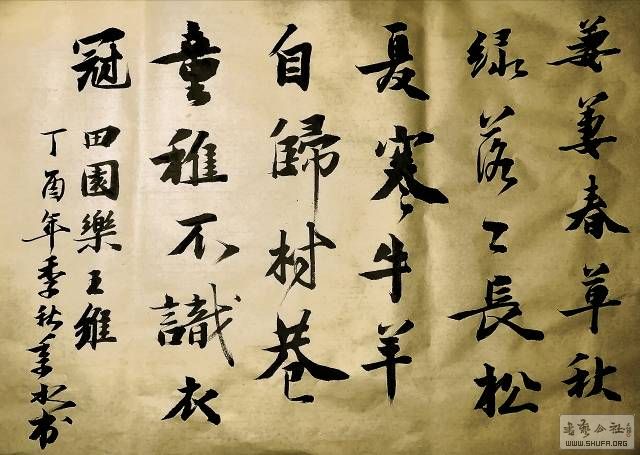 萋萋春草秋
绿落々長松
夏寒牛羊
自歸村巷
童稚不識衣
冠
田園樂王維
丁酉年季秋水书
书艺公社
WWW.SHUFA.ORG